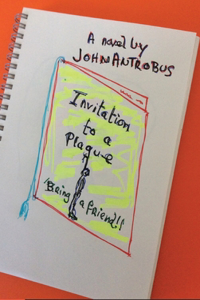 A novel by
JOHN ANTROBUS
Invitation
to a
Plague
'Being a friend!!